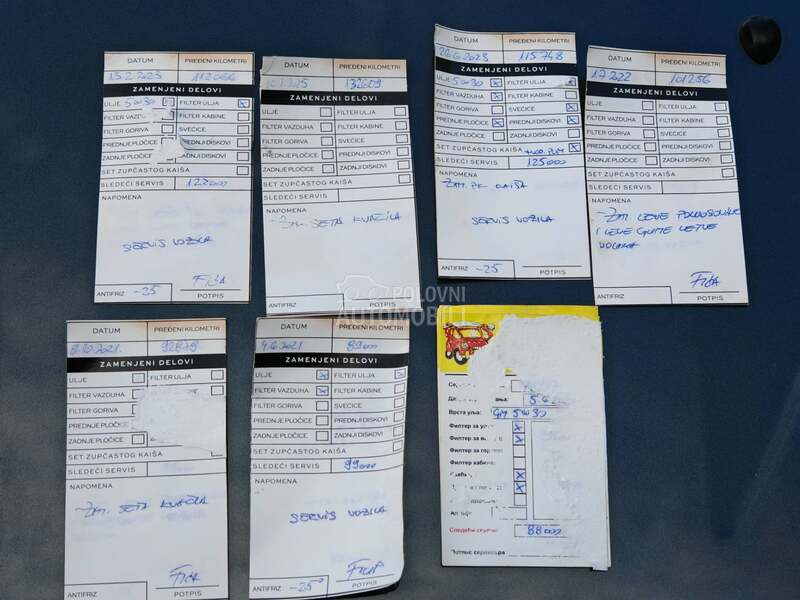 DATUM
PREĐENI KILOMETRI
15.2.2023
112066
ZAMENJENI DELOVI
ULJE 5W30
FILTER ULJA
FILTER VAZD
FILTER KABINE
FILTER GORIVA
SVEĆICE
PREDNJE PLOČICE
PREDNJI DISKOVI
ZADNJE PLOČICE
ZADNJI DISKOVI
SET ZUPČASTOG KAIŠA
SLEDEĆI SERVIS
122000
NAPOMENA
SERVIS VOZILA
ANTIFRIZ -25
POTPIS
DATUM
PREĐENI KILOMETRI
132609
ZAMENJENI DELOVI
ULJE
FILTER ULJA
FILTER VAZDUHA
FILTER KABINE
FILTER GORIVA
SVEĆICE
PREDNJE PLOČICE
PREDNJI DISKOVI
ZADNJE PLOČICE
ZADNJI DISKOVI
SET ZUPČASTOG KAIŠA
SLEDEĆI SERVIS
NAPOMENA
- ZAM. SETA KVAČILA
ANTIFRIZ
POTPIS
DATUM
PREĐENI KILOMETRI
115748
ZAMENJENI DELOVI
ULJE 5W30
FILTER ULJA
FILTER VAZDUHA
FILTER KABINE
FILTER GORIVA
SVEĆICE
PREDNJE PLOČICE
PREDNJI DISKOVI
ZADNJE PLOČICE
ZADNJI DISKOVI
SET ZUPČASTOG KAIŠA
SLEDEĆI SERVIS
125000
NAPOMENA
- ZAM. PK KAIŠA
SERVIS VOZILA
ANTIFRIZ -25
POTPIS
DATUM
PREĐENI KILOMETRI
101256
ZAMENJENI DELOVI
ULJE
FILTER ULJA
FILTER VAZDUHA
FILTER KABINE
FILTER GORIVA
SVEĆICE
PREDNJE PLOČICE
PREDNJI DISKOVI
ZADNJE PLOČICE
ZADNJI DISKOVI
SET ZUPČASTOG KAIŠA
SLEDEĆI SERVIS
NAPOMENA
- ZAM. LEVE POLUOSOVINE
I LEVE GUME LETVE
VOLANA
ANTIFRIZ
POTPIS
POLOVNI
AUTOMOBILI
DATUM
PREĐENI KILOMETRI
92878
ZAMENJENI DELOVI
ULJE
FILTER ULJA
FILTER VAZDUHA
FILTER GORIVA
PREDNJE PLOČICE
ZADNJE PLOČICE
SET ZUPČASTOG KAIŠA
SLEDEĆI SERVIS
NAPOMENA
- ZAM. SETA KVAČILA
ANTIFRIZ
POTPIS
DATUM
PREĐENI KILOMETRI
4.6.2021
89000
ZAMENJENI DELOVI
ULJE
FILTER ULJA
FILTER VAZDUHA
FILTER KABINE
FILTER GORIVA
SVEĆICE
PREDNJE PLOČICE
PREDNJI DISKOVI
ZADNJE PLOČICE
ZADNJI DISKOVI
SET ZUPČASTOG KAIŠA
SLEDEĆI SERVIS
99000
NAPOMENA
SERVIS VOZILA
ANTIFRIZ -25°
POTPIS
Врста уља: GM 5W30
Филтер за
Филтер за
Филтер за
Филтер кабине
Следећи
88000